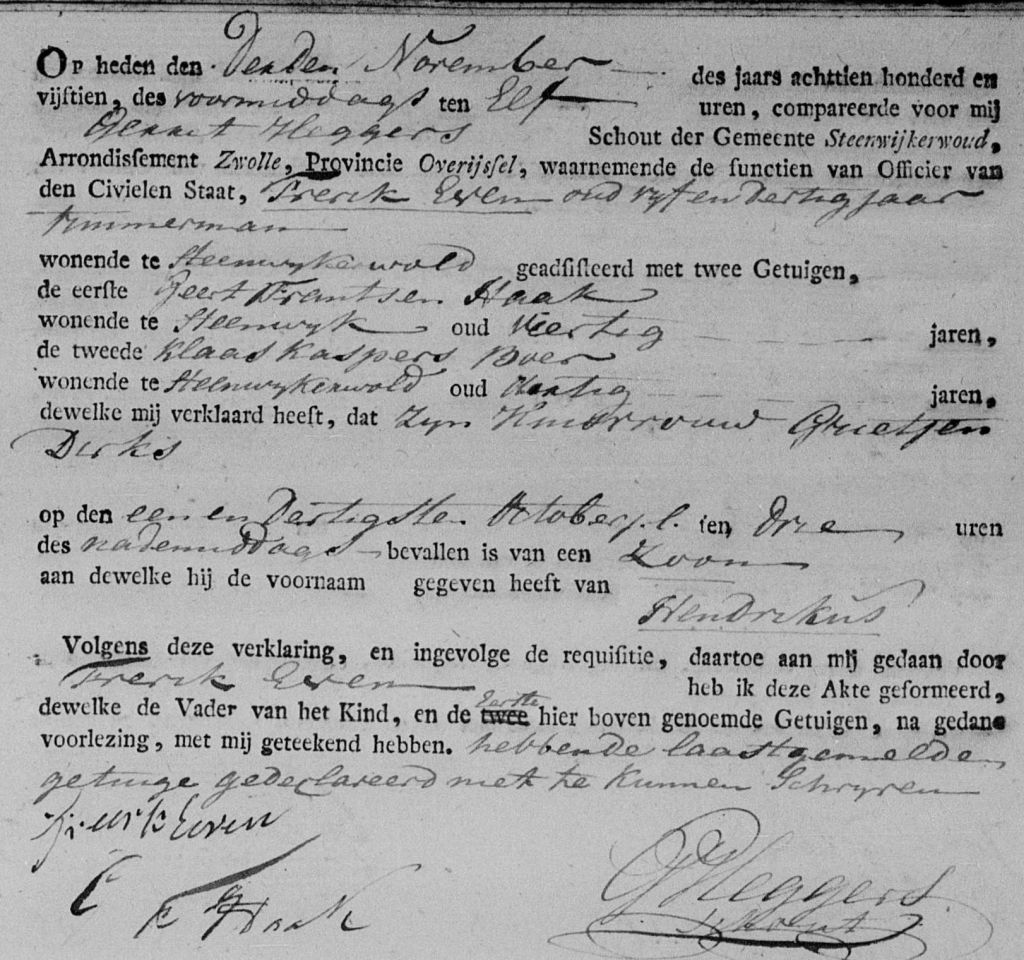 Op heden den Derden November des jaars achttien honderd en
vijftien, des voormiddags ten Elf uren, compareerde voor mij
Gerrit Heggers Schout der Gemeente Steenwijkerwoud,
Arrondissement Zwolle, Provincie Overijssel, waarnemende de functien van Officier van
den Civielen Staat, Frerik Even oud vyf en dertig jaar
timmerman
wonende te Steenwykerwold geadsisteerd met twee Getuigen,
de eerste Geert Frantsen Haak
wonende te Steenwyk oud Veertig jaren,
de tweede Klaas Kaspers Boer
wonende te Steenwykerwold oud jaren,
dewelke mij verklaard heeft, dat Zyn Huisvrouw Grietjen
Dirks
op den een en Dertigsten October j.l. ten Drie uren
des nademiddags bevallen is van een Zoon
aan dewelke hij de voornaam gegeven heeft van
Hendrikus
Volgens deze verklaring, en ingevolge de requisitie, daartoe aan mij gedaan door
Frerik Even heb ik deze Akte geformeerd,
dewelke de Vader van het Kind, en de twee Eerste hier boven genoemde Getuigen, na gedane
voorlezing, met mij geteekend hebben. hebbende laastgemelde
getuige gedeclareerd niet te kunnen Schryven
Frerik Even
G F Haak
G Heggers
Schout